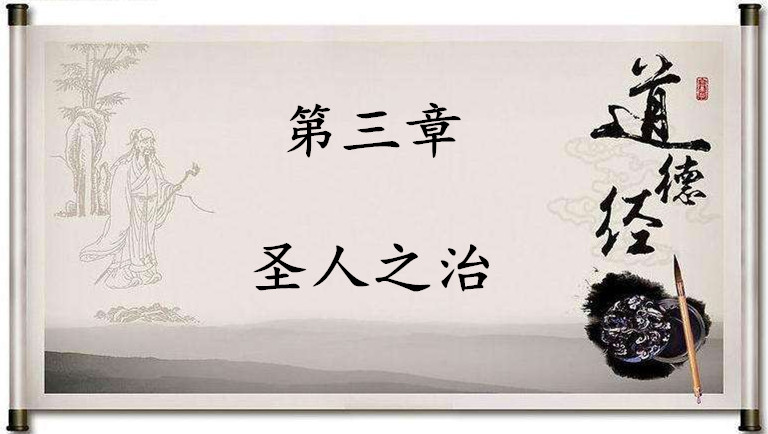 第三章
圣人之治
道德经